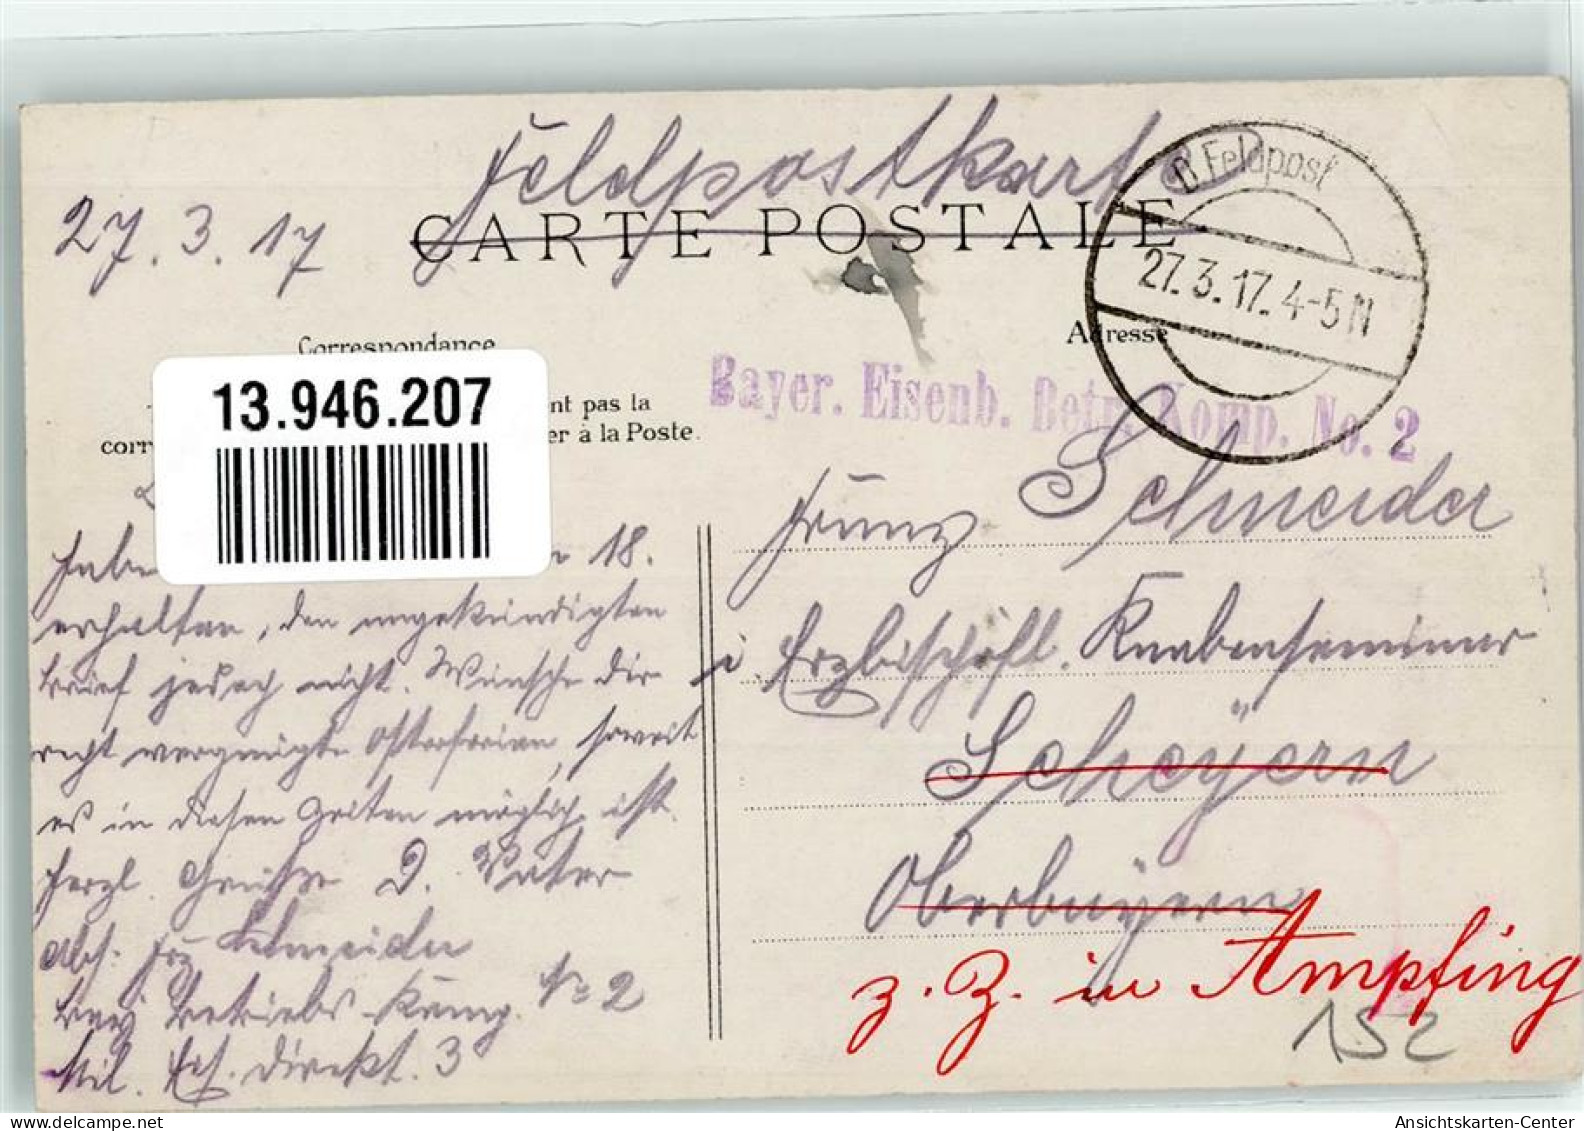 Feldpostkarte
27.3.17
CARTE POSTALE
B. Feldpost
27.3.17. 4-5 N
Correspondance
Adresse
13.946.207
nt pas la
corr er à la Poste.
Bayer. Eisenb. Betr. Komp. No. 2
Habe 18.
erhalten, den angekündigten
Brief jedoch nicht. Wünsche Dir
recht vergnügte Osterferien, soweit
es in diesen Zeiten möglich ist.
Herzl. Grüße D. Vater
Abs: Frz Schneider
Bay Betriebs-Komp. No 2
Mil. Eis. Direkt. 3
Franz Schneider
i. Erzbischöfl. Knabenseminar
Scheyern
Oberbayern
z. Z. in Ampfing
152
Ansichtskarten-Center